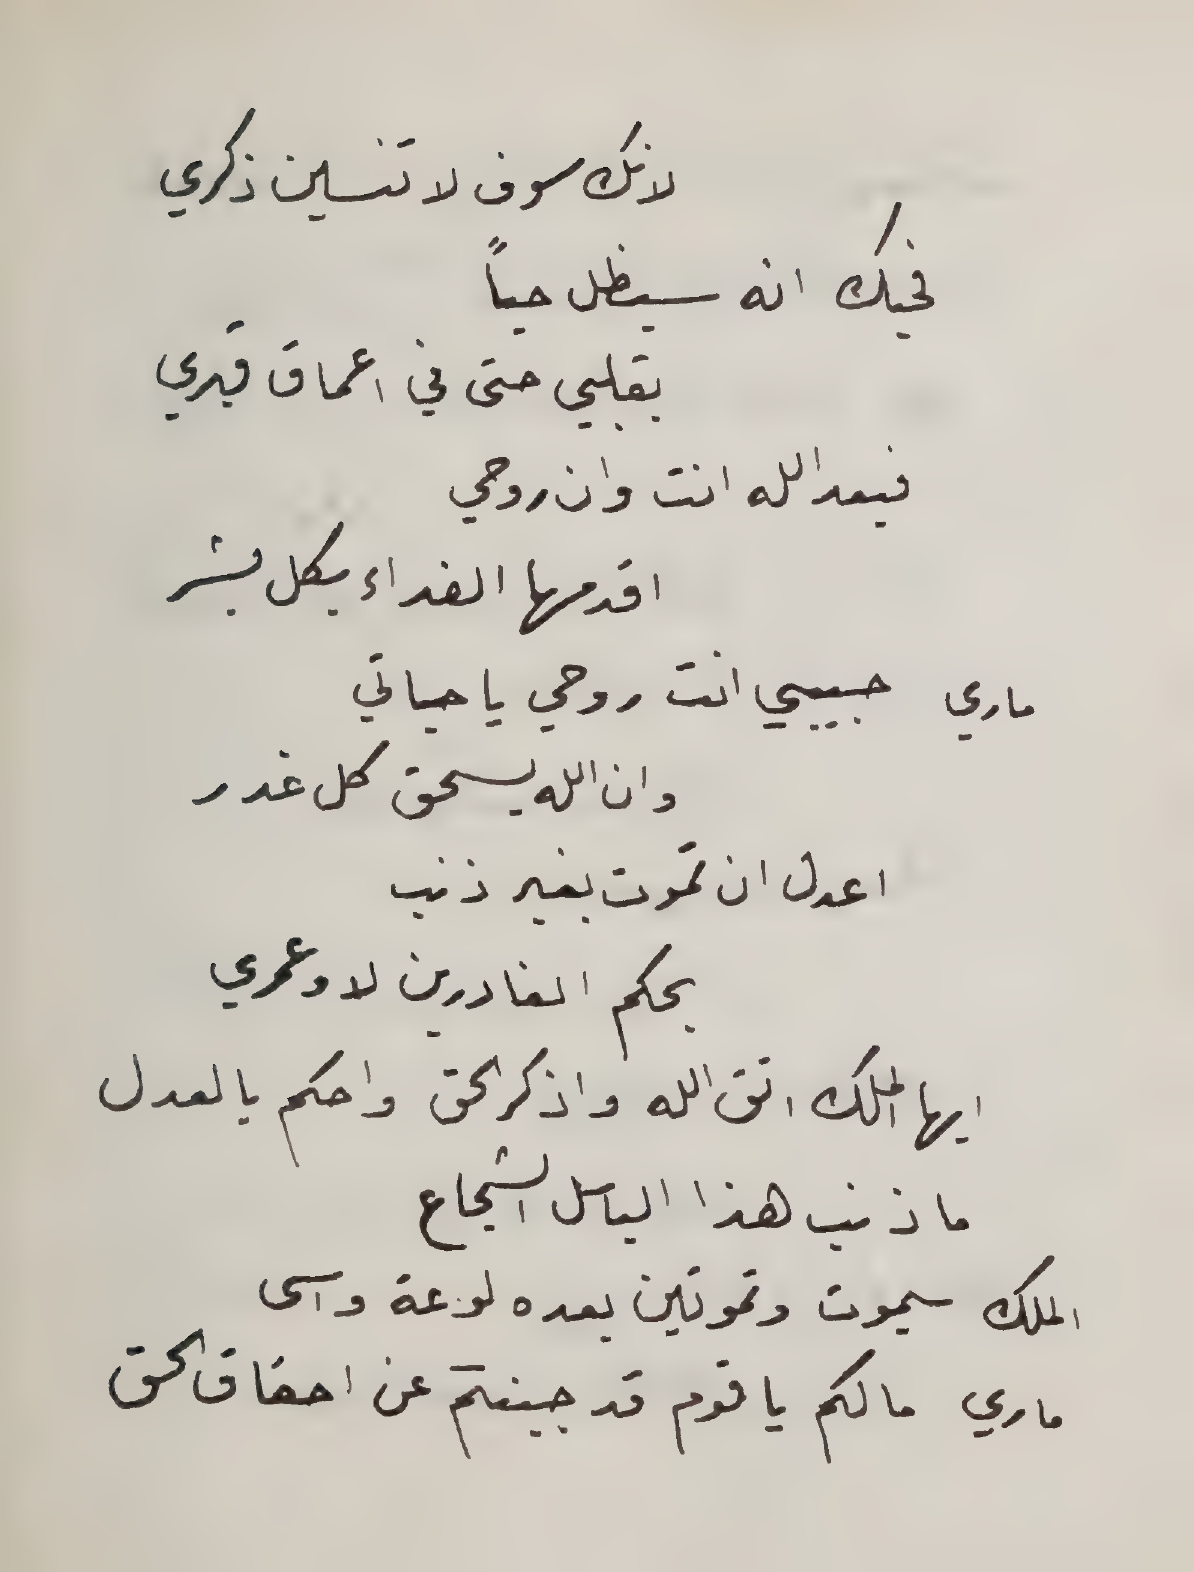 لانك سوف لا تنسين ذكري
فحبك انه سيظل حياً
بقلبي حتى في اعماق قبري
فبعد الله انت وان روحي
اقدمها الفداء بكل بشر
ماري حبيبي انت روحي يا حياتي
وان الله يسحق كل غدر
اعدل ان تموت بغير ذنب
بحكم الغادرين لا وعمري
ايها الملك اتق الله واذكر الحق واحكم بالعدل
ما ذنب هذا الباسل الشجاع
الملك سيموت وتموتين بعده لوعة واسى
ماري مالكم يا قوم قد جبنتم عن احقاق الحق